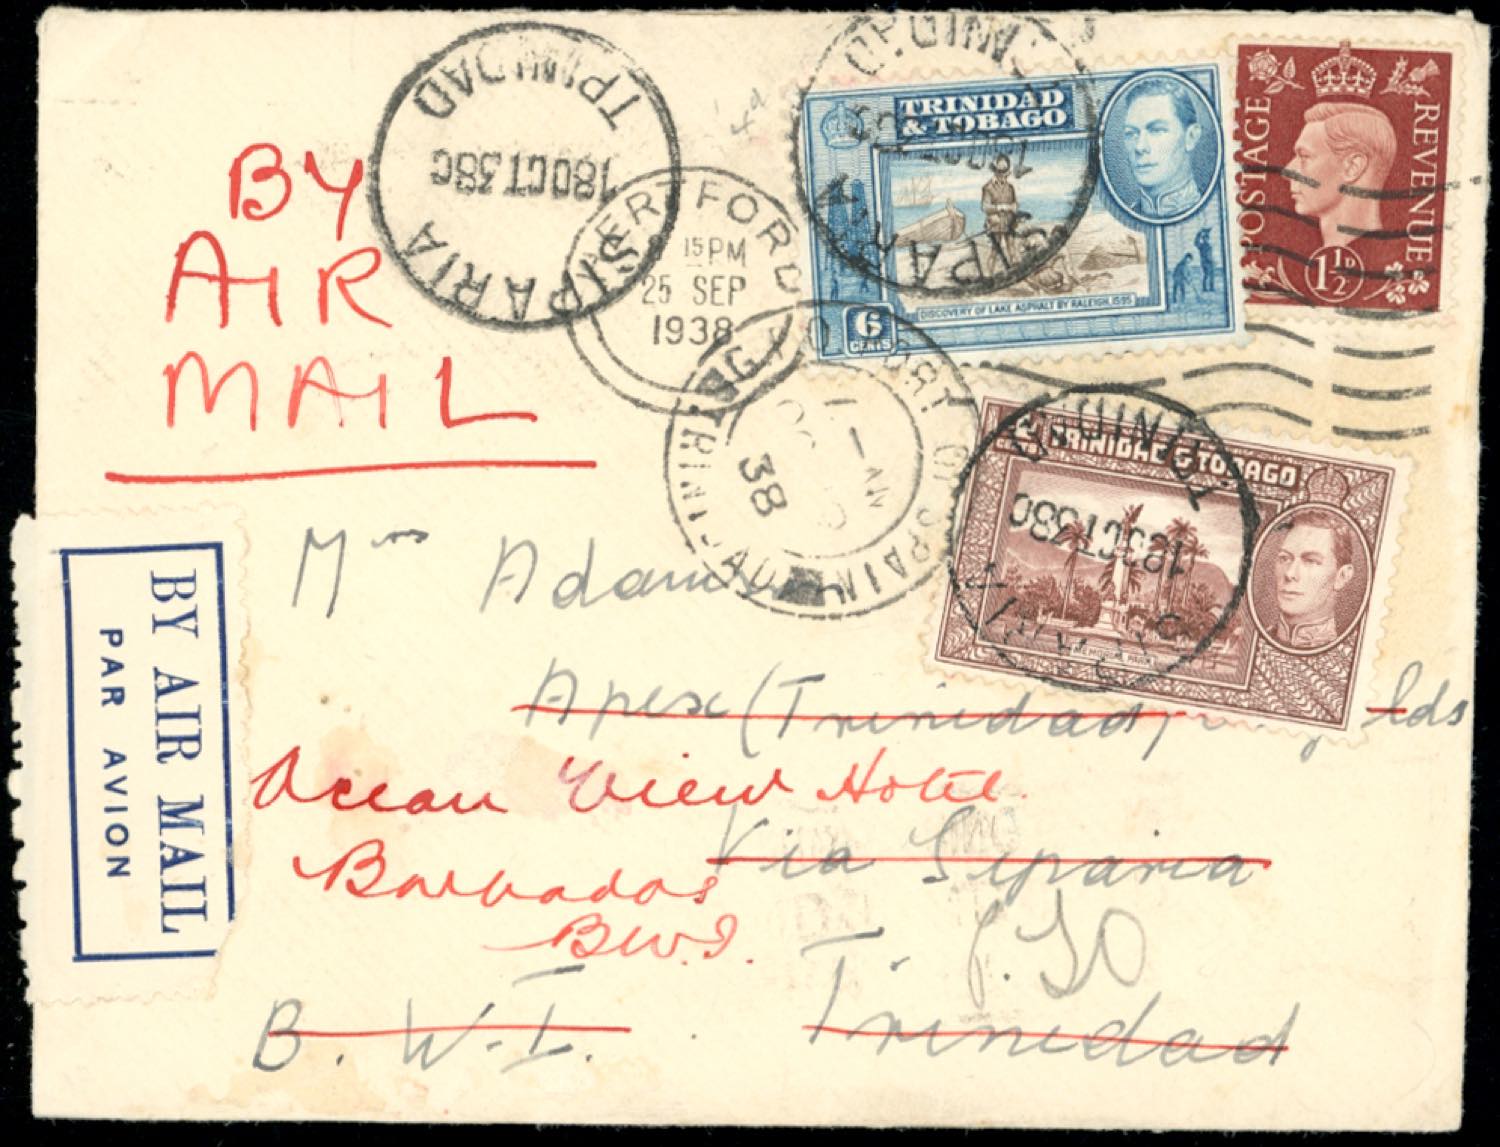 BY
AIR
MAIL
SIPARIA
18OCT38C
TRINIDAD
HERTFORD
15 PM
25 SEP
1938
TRINIDAD
& TOBAGO
DISCOVERY OF LAKE ASPHALT BY RALEIGH, 1595
6
CENTS
SIPARIA
TRINIDAD
POSTAGE
REVENUE
1½D
G.P.O. PORT OF SPAIN
TRINIDAD
38
TRINIDAD & TOBAGO
MEMORIAL PARK
SIPARIA
18OCT38C
TRINIDAD
BY AIR MAIL
PAR AVION
Mrs Adams
Apex (Trinidad) lds
Ocean View Hotel
Via Siparia
Barbados
B.W.I.
Trinidad
B. W. I.